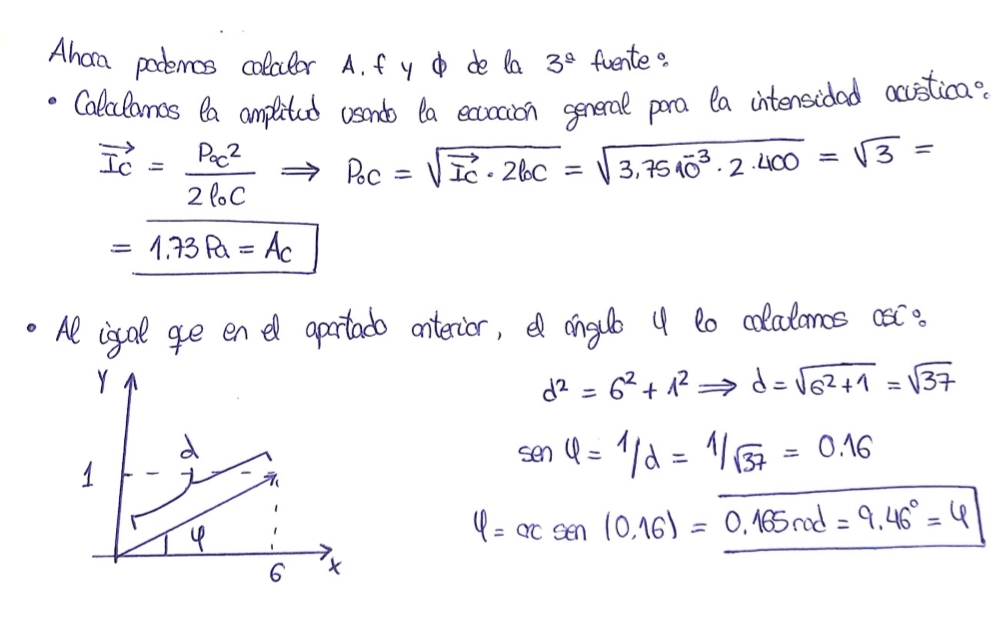 Ahora podemos calcular A, f y ϕ de la 3ª fuente:
• Calculamos la amplitud usando la ecuación general para la intensidad acústica:
Ic = Poc² / 2ρoC ⟹ PoC = √(Ic · 2ρoC) = √(3,75·10⁻³ · 2 · 400) = √3 =
= 1.73 Pa = Ac
• Al igual que en el apartado anterior, el ángulo φ lo calculamos así:
d² = 6² + 1² ⟹ d = √(6²+1) = √37
sen φ = 1/d = 1/√37 = 0.16
φ = arc sen (0,16) = 0,165 rad = 9,46° = φ
Y
d
1
φ
6
x